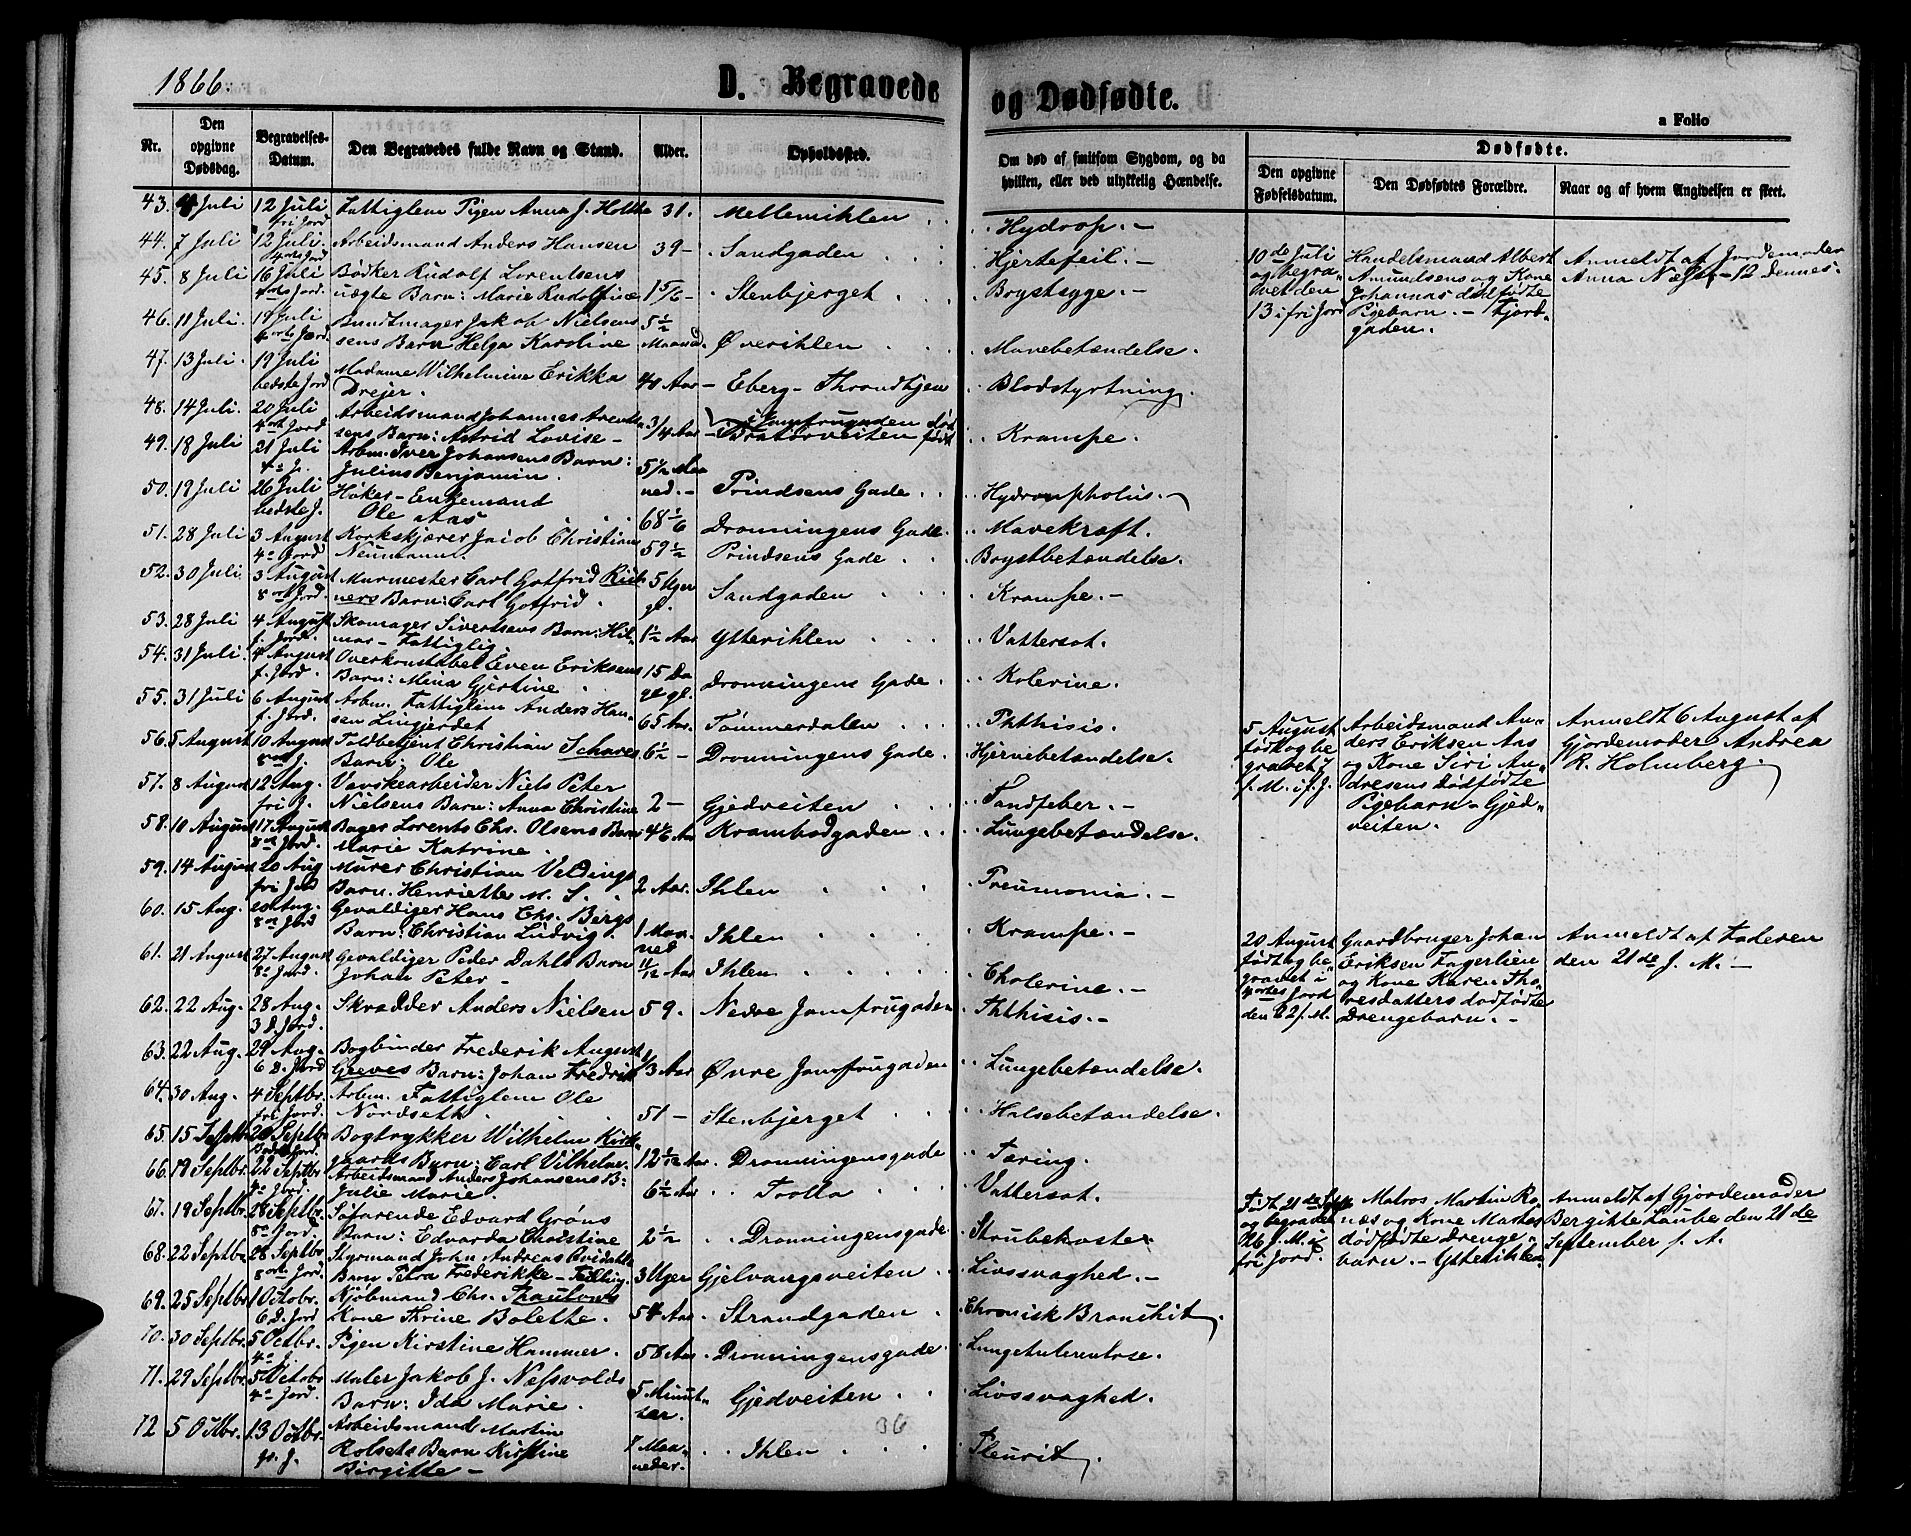 1866.
D. Begravede og Dødfødte.
a Folio
Nr. | Den opgivne Dødsdag. | Begravelses-Datum. | Den Begravedes fulde Navn og Stand. | Alder. | Opholdssted. | Om død af smitsom Sygdom, og da hvilken, eller ved ulykkelig Hændelse. | Dødfødte. | Den opgivne Fødselsdatum. | Den Dødfødtes Forældre. | Naar og af hvem Angivelsen er skeet.
43. Juli 12 Juli fri Jord Fattiglem Pigen Anna J. Holthe 31. Mellemihlen Hydrop. -
44. 7 Juli 12 Juli. Jord Arbeidsmand Anders Hansen 39 - Sandgaden Hjertefeil. -
45. 8 Juli 16 Juli Jord. Bødker Rudolf Lorentsens
uægte Barn: Marie Rudolfine 1 5/6 - Stenbjerget Brystsyge. -
46. 11 Juli. Juli Jord. Bundtmager Jakob Nielsens
sens Barn Helga Karoline 5 1/2 Maaned. Øverihlen Mavebetændelse.
47. 13 Juli. 19 Juli bedste Jord Madame Wilhelmine Erikka
Drejer. 40 Aar - Eberg - Throndhjem Blodstyrtning.
48. 14 Juli. 20 Juli Jord Arbeidsmand Johannes
sens Barn: Astrid Lovise - 3/4 Aar i Jomfrugaden død
Bratørveiten født Krampe.
49. 18 Juli 21 Juli 4 J. Arbm. Iver Johansens Barn:
Julius Benjamin. 5 1/2 Maaned. - Prindsens Gade
50. 19 Juli 26 Juli bedste J. Høker - Enkemand
Ole Aas 68 1/6 Dronningens Gade. Mavekræft.
51. 28 Juli 3 August 4 Jord Korkskjærer Jacob Christian
Neumann. 59 1/2 Prindsens Gade Brystbetændelse.
52. 30 Juli. 3 August 8 Jord. Murmester Carl Gotfrid
ners Barn: Carl Gotfrid. 5 Uger gl. Sandgaden Krampe. -
53. 28 Juli 4 August f. Jord. Skomager Sivertsens Barn: Hil-
mar - Fattiglig. 1 1/2 Aar Ytterihlen Vattersot.
54. 31 Juli. 4 August f. Jord. Overkonstabel Even Eriksens
Barn: Mina Gjertine 15 Dage gl. Dronningens Gade. Kolerine.
55. 31 Juli 6 August f. Jord. Arbm. Fattiglem Anders Han-
sen Lingjerdet 65 Aar. Tømmerdalen Phthisis.
56. 5 August 10 August J. Toldbetjent Christian Schaves
Barn: Ole 6 1/2 - Dronningens Gade. Hjernebetændelse.
57. 8 August 12 Aug. fri J. Vævskearbeider Niels Peter
Nielsens Barn: Anna Christine 2 - Gjedveiten Tandfeber. -
58. 10 August 17 August Jord. Bager Lorents Chr. Olsens Barn
Marie Katrine. 4 1/6 Aar Krambodgaden Lungebetændelse.
59. 14 August 20 Aug fri Jord Murer Christian Veldings
Barn. Henriette M. S. 2 Aar. Ihlen Pneumonia. -
60. 15 Aug. 20 Aug. Jord Gevaldiger Hans Chr. Bergs
Barn: Christian Ludvig. 1 Maaned Ihlen Krampe. -
61. 21 August 27 August 8 Jord. Gevaldiger Peder Dahls Barn
Johan Peter - 11/12 Aar Ihlen Cholerine. -
62. 22 Aug. 28 Aug. 3 D. Jord. Skrædder Anders Nielsen 59. Nedre Jomfrugaden Phthisis. -
63. 22 Aug. 29 Aug. 6 D. Jord Bogbinder Frederik August
Greves Barn: Johan Fredrik 1/3 Aar Øvre Jomfrugaden Lungebetændelse.
64. 30 Aug. 4 Septbr. fri Jord. Arbm. Fattiglem Ole
Nordseth. 51 - Stenbjerget Halsebetændelse.
65. 15 Septbr 20 Septbr. Jord. Bogtrykker Wilhelm Kirke-
gaards Barn: Carl Vilhelm. 12 1/12 Aar. Dronningensgade Tæring.
66. 19 Septbr. 22 Septbr Jord. Arbeidsmand Anders Johansens B:
Julie Marie. 6 1/2 Aar Trolla Vattersot.
67. 19 Septbr. 28 Septbr. Jord. Søfarende Edvard Grøns
Barn: Edvarda Christine 2 1/2 Dronningensgade Strubehoste
68. 22 Septbr. 28 Septbr Jord. Styrmand John Andreas
Barn Petra Frederikke - 3 Uger Gjelvangsveiten Livssvaghed. -
69. 25 Septbr. 1 Octobr. 6 D. Jord Kjøbmand Chr. Thaulows
Kone Thrine Bolette. 54 Aar Strandgaden Chronisk Bronchit.
70. 30 Septbr. 5 Octbr. Pigen Kirstine Hammer. 58 Aar Dronningensgade. Lungetuberculose.
71. 29 Septbr. 5 Octobr 4 Jord. Maler Jakob J. Nessvolds
Barn: Ida Marie. 5 Minutter. Gjedveiten Livssvaghed.
72 5 Octbr. 13 Octbr. J. Arbeidsmand Martin
Rolsets Barn Kirstine
Birgitte - 8 Maaneder. Ihlen Pleurit.
36
10de Juli
og begra-
vet den
13 i fri Jord
Handelsmand Albert
Amundsens og Kone
Johannas dødfødte
Pigebarn. - Fjord-
gaden.
Anmeldt af Jordemoder
Anna Næss - 12 dennes.
5 August
født og be
gravet 7
f. M. i f. J.
Arbeidsmand An-
ders Eriksen Aas
og Kone Siri An-
dresens dødfødte
Pigebarn - Gjed-
veiten.
Anmeldt 6 August af
Gjordemoder Andrea
R. Holmberg.
20 August
født og be
gravet i
fortes Jord
den 22 f. M.
Gaardbruger Johan
Eriksen Fagerlien
og Kone Karen Tho-
resdatters dødfødte
Drengebarn. -
Anmeldt af Faderen
den 21de f. M. -
Født 21de Sept
og begravet
26 f. M. i
fri Jord.
Matros Martin Ro-
næs og Kone Martes
dødfødte Drenge-
barn. - Ytterihlen
Anmeldt af Gjordemoder
Bergitte Laube den 21de
September f. A.